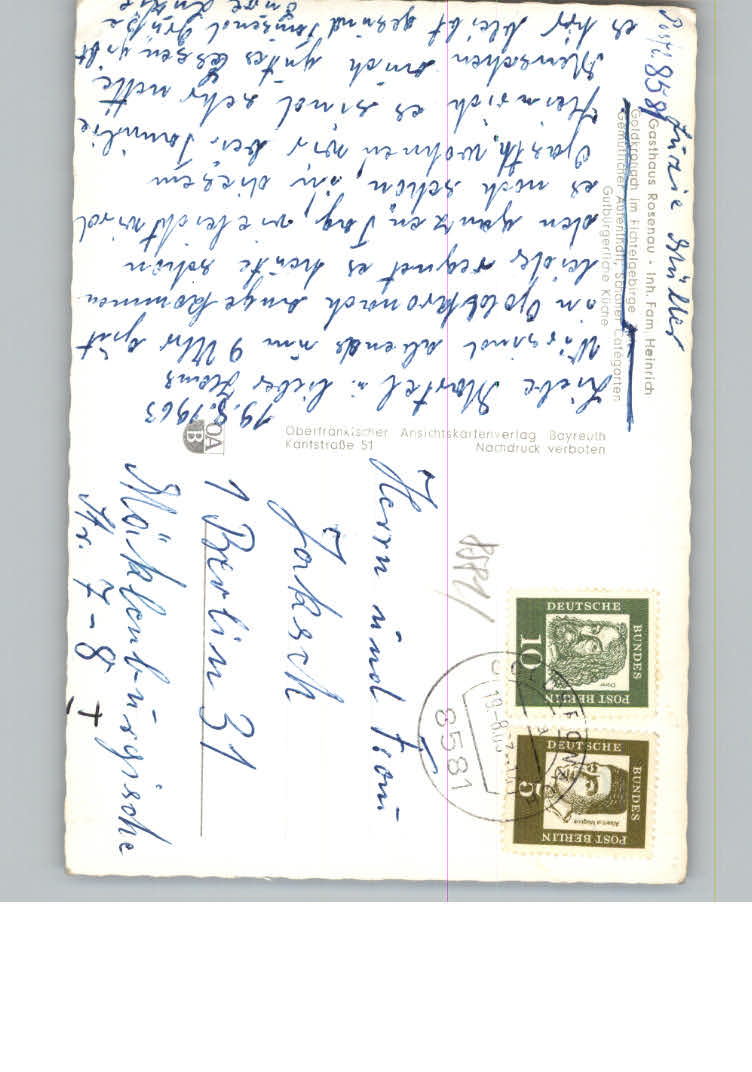 Gasthaus Rosenau · Inh. Fam. Heinrich
Goldkronach im Fichtelgebirge
Gemütlicher Aufenthalt, Schöner Cafégarten
Gutbürgerliche Küche
8581
19.8.1963
Liebe Martel u. lieber Hans
Wir sind abends um 9 Uhr gut
in Goldkronach angekommen
leider regnet es heute schon
den ganzen Tag, vieleicht wird
es noch schön, in diesem
Gasth. wohnen wir bei Familie
Heinrich es sind sehr nette
Menschen auch gutes Essen gibt
es hir bleibt gesund tausend Grüße
Oberfränkischer Ansichtskartenverlag Bayreuth
Kantstraße 51 Nachdruck verboten
OAB
Herrn und Frau
Jaksch
1 Berlin 31
Mäklenburgische
Str. 7-8
8581
DEUTSCHE
BUNDES
POST BERLIN
10
Dürer
DEUTSCHE
BUNDES
POST BERLIN
5
Albertus Magnus
8581